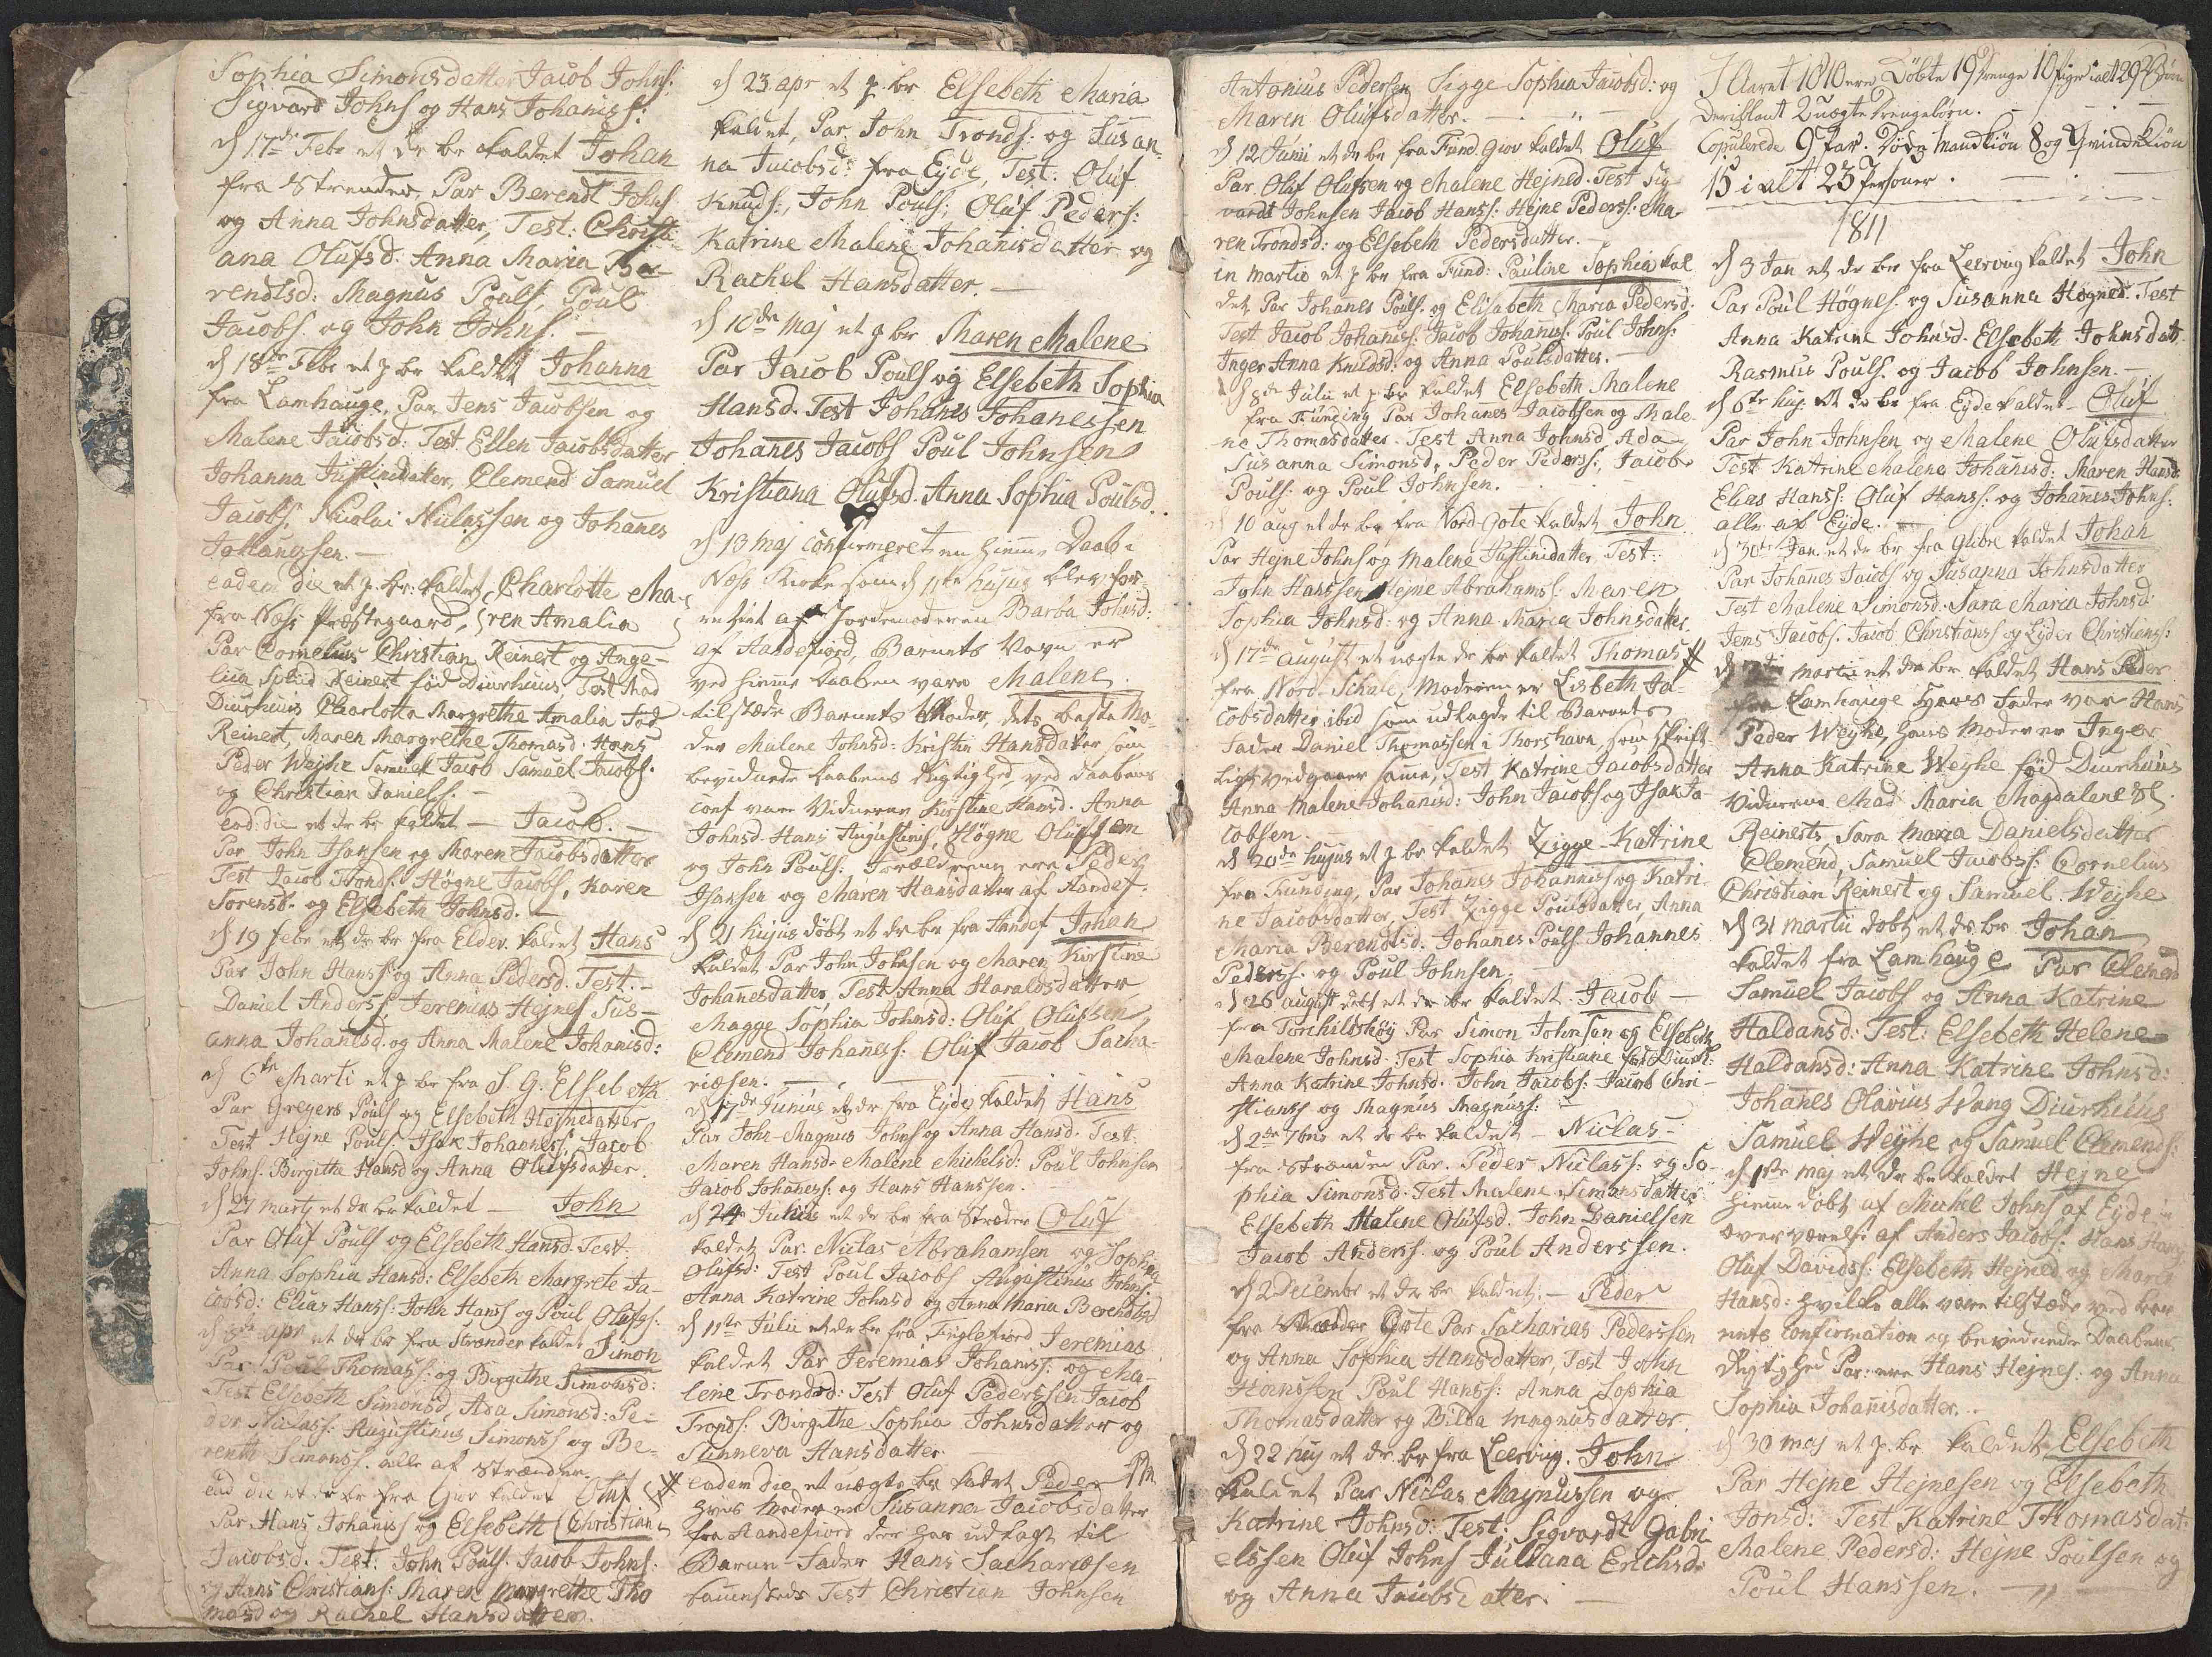 Sophia Simonsdatter Jacob Johns:
Sigvard Johns og Hans Johaness:
d 17de Febr et dr br kaldet Johan
fra Strender, Par Berendt Johns
og Anna Johnsdatter, Test: Christi
ana Olufsd. Anna Maria Be-
rendtsd: Magnus Pouls, Poul
Jacobs. og John Johns. –
d 18de Febr et p br kaldet Johanna
fra Lamhauge, Par Jens Jacobsen og
Malene Jacobsd: Test Ellen Jacobsdatter
Johanna Justinidatter, Clemend Samuel
Jacobs, Nicolai Niclassen og Johanes
Johanessen. –
eadem die et p. br. kaldet Charlotte Ma-
fra Næss Præstegaard, ren Amalia
Par Cornelius Christian Reinert og Ange-
lica Reinert fød Diurhuus, Test Mad
Diurhuus Charlotta Margrethe Amalia fød
Reinert, Maren Margrethe Thomasd. Hans
Peder Weyhe Samuel Jacob Samuel Jacobs.
og Christian Daniels. –
ead. die et dr br kaldet – Jacob. –
Par John Isaksen og Maren Jacobsdatter
Test Jacob Tronds. Høgne Jacobs, Karen
Sorensd. og Elsebeth Johnsd. –
d 19 febr et dr br fra Eldev. kaldet Hans
Par John Hanss og Anna Pedersd. Test. –
Daniel Anderss, Jeremias Hejnes Sus-
anna Johanesd. og Anna Malene Johanisd:
d 6te Marti et p br fra S. G. Elsebeth
Par Gregers Pouls og Elsebeth Hejnedatter
Test Hejne Pouls. Isak Johaness, Jacob
Johns. Birgithe Hansd og Anna Olufsdatter.
d 27 marts et dr br kaldet – John
Par Oluf Pouls og Elsebeth Hansd. Test.
Anna Sophia Hansd: Elsebeth Margrete Ja-
cobsd: Elias Hanss: John Hanss og Poul Olufss:
apr et dr br fra Strender kaldet Simon
Par Poul Thomass: og Birgithe Simonsd:
Test Elsebeth Simonsd, Ada Simonsd: Pe-
der Niclass: Augustinus Simonss og Be-
renth Simonss. alle af Strender.
ead die et dr br fra Giov kaldet Oluf
Par Hans Johaness og Elsebeth Christian
Jacobsd. Test: John Pouls. Jacob Johns.
og Hans Christians: Maren Margrethe Tho
masd og Rachel Hansdatter.
d 23 apr et p. br Elsebeth Maria
kaldet, Par. John Tronds: og Susan-
na Jacobsd: fra Eyde, Test. Oluf
Knuds:, John Pouls:, Oluf Peders:
Katrine Malene Johanisdatter og
Rachel Hansdatter. –
d 10de Maj et p br Maren Malene
Par Jacob Pouls og Elsebeth Sophia
Hansd. Test Johanes Johanessen
Johanes Jacobs Poul Johnsen
Kristiana Olufsd. Anna Sophia Poulsd.
d 13 Maj confirmeret en hjemme Daab i
Næss Kirke som d 11te hujus blev for-
rettet af Jordemoderen Barba Johnsd:
af Handefiord, Barnets Navn er
ved hjemme daaben vare Malene.
tilstæde Barnets Moder, dets beste Mo-
der Malene Johnsd: Kristin Hansdatter som
bevidnede daabens Rigtighed, ved daabens
conf vare Vidnerne Kirstine Hansd. Anna
Johnsd. Hans Augustinus, Høgne Olufsen
og John Pouls: Forældrene ere Peder
Isaksen og Maren Hansdatter af Handef.
d 21 hujus døbt et dr br fra Handef Johan
kaldet Par John Johnsen og Maren Kirstine
Johanesdatter, Test Anna Haraldsdatter
Magge Sophia Johnsd: Oluf Olufsen
Clemend Johaness: Oluf Jacob Sacha-
riæsen. –
d 17de Junius et dr fra Eyde kaldet Hans
Par John Magnus Johns og Anna Hansd. Test.
Maren Hansd. Malene Michelsd: Poul Johnsen
Jacob Johaness: og Hans Hanssen.
d 24 Junius et dr br fra Strender Oluf
kaldet Par. Niclas Abrahamsen og Sophia
Olufsd: Test Poul Jacobs Augustinus Johns:
Anna Katrine Johnsd og Anna Maria Berendtsd
d 11te Julii et dr br fra Funglefiord Jeremias
kaldet Par Jeremias Johanes: og Ma-
lene Trondsd: Test Oluf Pederssen Jacob
Tronds: Birgithe Sophia Johnsdatter og
Sunneva Hansdatter
eadem die et uægte br kaldet Peder
hvis Moder er Susanna Jacobsdatter
fra Handefiord der har udlagt til
Barne-Fader Hans Sachariæsen
sammesteds Test Christian Johnsen
Antonius Pedersen Sigge Sophia Jacobsd: og
Maren Olufsdatter. –
d 12 Junii et dr br fra Fund. Giov kaldet Oluf
Par Oluf Olufsen og Malene Hejned. Test Sig
vardt Johnsen Jacob Hanss: Hejne Pederss. Ma-
ren Trondsd: og Elsebeth Pedersdatter. –
in Martio et p br fra Fund: Pauline Sophia kal
det, Par Johanes Pouls. og Elisabeth Maria Pedersd.
Test Jacob Johaniss: Jacob Johaness. Poul Johns:
Inger Anna Knudsd: og Anna Poulsdatter. –
d 8de Julii et p br kaldet Elsebeth Malene
fra Funding Par Johanes Jacobsen og Male-
ne Thomasdatter. Test Anna Johnsd, Ada
Susanna Simonsd, Peder Pederss:, Jacob
Pouls: og Poul Johnsen.
d 10 aug et dr br fra Nord-Gote kaldet John
Par Hejne Johns og Malene Justinidatter Test:
John Hanssen Hejne Abrahams: Maren
Sophia Johnsd: og Anna Maria Johnsdatter.
d 17de august et uægte dr br kaldet Thomas
fra Nord-Schale, Moderen er Lisbeth Ja-
cobsdatter ibid som udlagde til Barnets
Fader Daniel Thomassen i Thorshavn som skrift-
ligt vedgaaer samme, Test Katrine Jacobsdatter
Anna Malene Johanisd: John Jacobs og Isak Ja-
cobsen.
d 20de hujus et p br kaldet Zigge Katrine
fra Funding, Par Johanes Johanness og Katri-
ne Jacobsdatter, Test Zigge Poulsdatter, Anna
Maria Berendtsd. Johanes Pouls. Johannes
Pederss. og Poul Johnsen. –
d 26 august døbt et dr br kaldet Jacob –
fra Torchildshøy Par Simon Johnsen og Elsebeth
Malene Johnsd. Test Sophia Kristiane fød Diurh:
Anna Katrine Johnsd. John Jacobs: Jacob Chri-
stianss og Magnus Magnuss: –
d 2de 7bris et dr br kaldet – Niclas –
fra Strender Par. Peder Niclass: og So-
phia Simonsd. Test Malene Simonsdatter
Elsebeth Malene Olufsd. John Danielsen
Jacob Anderss. og Poul Anderssen.
d 2 Decembr et dr br kaldet. – Peder
fra Gote Par Sacharias Pederssen
og Anna Sophia Hansdatter, Test John
Hanssen Poul Hanss: Anna Sophia
Thomasdatter og Billa Magnusdatter.
d 22 huj et dr br fra Leervig. John
kaldet Par Niclas Magnussen og
Katrine Johnsd: Test: Sigvardt Gabri
elssen Oluf Johns Juliana Erichsd:
og Anna Jacobsdatter. –
I Aaret 1810 ere Døbte 19 Drenge 10 Piger ialt 29 Børn
Deriblant 2 uægte Drengebørn. –
Copulerede 9 Par. Døde Mandkiøn 8 og Qvindekiøn
15 i alt 23 Personer. –
1811
d 3 Jan et dr br fra Leervig kaldet John
Par Poul Høgnes. og Susanna Høgned. Test
Anna Katrine Johnsd. Elsebeth Johnsdatt.
Rasmus Pouls. og Jacob Johnsen. –
d 6te huj. et dr br fra Eyde kaldet – Oluf
Par John Johnsen og Malene Olufsdatter
Test Katrine Malene Johanisd: Maren Hansd:
Elias Hanss: Oluf Hanss: og Johanes Johns:
alle af Eyde. –
d 30te Jan. et dr br fra Glibre kaldet Johan
Par Johanes Jacobs og Susanna Johnsdatter
Test Malene Simonsd. Sara Maria Johnsd:
Jens Jacobs. Jacob Christianss og Lyder Christianss:
d Martii et dr br kaldet Hans Peder
fra Lamhauge hvis Fader var Hans
Peder Weyhe, hans Moder er Inger
Anna Katrine Weyhe fød Diurhuus
Vidnerne Mad Maria Magdalene
Reinert, Sara Maria Danielsdatter
Clemend, Samuel Jacobss: Cornelius
Christian Reinert og Samuel Weyhe
d 31 martii døbt et dr br Johan
kaldet fra Lamhauge Par Clemend
Samuel Jacobs og Anna Katrine
Haldansd: Test: Elsebeth Helene
Haldansd: Anna Katrine Johnsd:
Johanes Olavius Wang Diurhuus
Samuel Weyhe og Samuel Clemends:
d 1ste Maj et dr br kaldet Hejne
hjemmedøbt af Michel Johns af Eyde i
overværelse af Anders Jacobs. Hans Hans
Oluf Davidss: Elsebeth Hejned og Maria
Hansd: hvilke alle vare tilstæde ved bar
nets confirmation og bevidnede Daabens
Rigtighed Par: ere Hans Hejnes: og Anna
Sophia Johanisdatter. –
d 30 Maj et p. br kaldet Elsebeth
Par Hejne Hejnesen og Elsebeth
Jonsd: Test Katrine Thomasdat:
Malene Pedersd: Hejne Poulsen og
Poul Hanssen. –